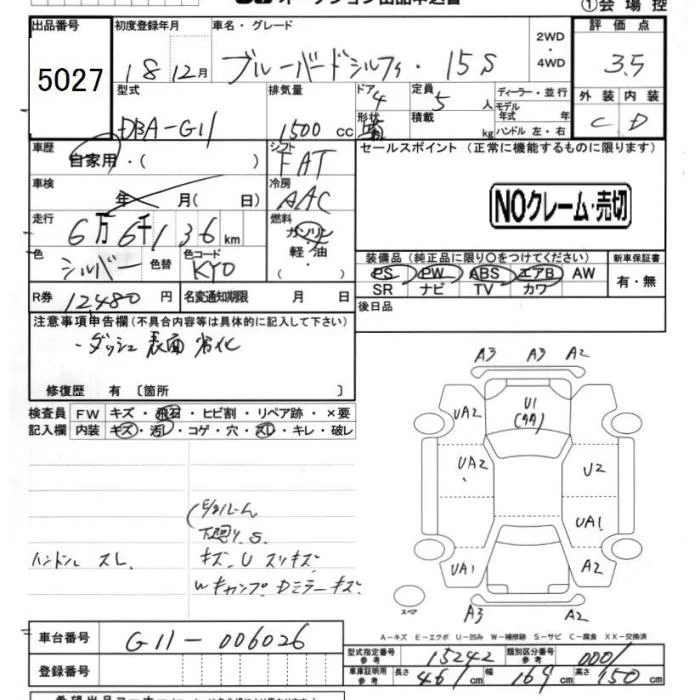 オークション出品申込書
①会場控
出品番号 5027
初度登録年月 18 12月
車名・グレード ブルーバードシルフィ・15S
2WD・4WD
評価点 3.5
型式 DBA-G11
排気量 1500 cc
ドア 4
形状 箱
定員 5 人
積載 kg
ディーラー・並行
モデル年式 年
ハンドル 左・右
外装 C
内装 D
車歴 自家用・( )
シフト FAT
セールスポイント (正常に機能するものに限ります)
車検 年 月( 日)
冷房 AAC
NOクレーム・売切
走行 6万6千136km
燃料 ガソリン 軽・油 ・( )
色 シルバー 色替
色コード KY0
装備品 (純正品に限り○をつけてください)
PS PW ABS エアB AW
SR ナビ TV カワ
新車保証書 有・無
R券 12,480 円
名変通知期限 月 日
後日品
注意事項申告欄(不具合内容等は具体的に記入して下さい)
・ダッシュ 表面 劣化
修復歴 有 〔箇所 〕
検査員記入欄
FW キズ・飛石・ヒビ割・リペア跡・×要
内装 キズ・汚レ・コゲ・穴・スレ・キレ・破レ
下廻り S
ハンドル スレ
キズ、U スリキズ
Wキャップ Dミラーキズ
A3 A3 A2
UA2 U1
UA2 U2
UA1
UA1 A2
A3 A2
スペア
A-キズ E-エクボ U-凹み W-補修跡 S-サビ C-腐食 XX-交換済
車台番号 G11-006026
登録番号
型式指定番号 参考 15242
類別区分番号 参考 0001
車庫証明用 参考 長さ 461 cm 幅 169 cm 高さ 150 cm